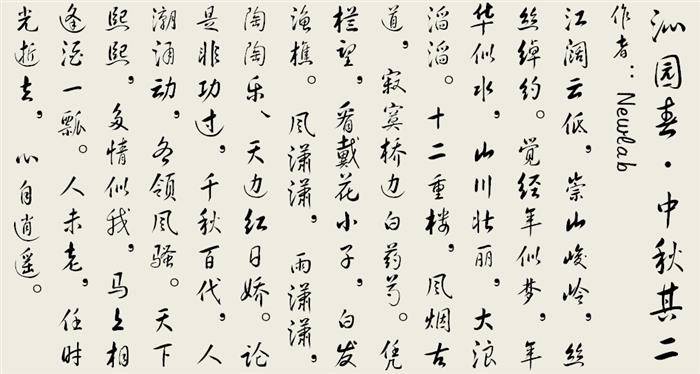 沁园春·中秋其二
作者：Newlab
江阔云低，崇山峻岭，丝
丝绰约。觉经年似梦，年
华似水，山川壮丽，大浪
滔滔。十二重楼，风烟古
道，寂寞桥边白药芍。凭
栏望，看戴花小子，白发
渔樵。风潇潇，雨潇潇，
陶陶乐、天边红日娇。论
是非功过，千秋百代，人
潮涌动，各领风骚。天下
熙熙，多情似我，马上相
逢酒一瓢。人未老，任时
光逝去，心自逍遥。